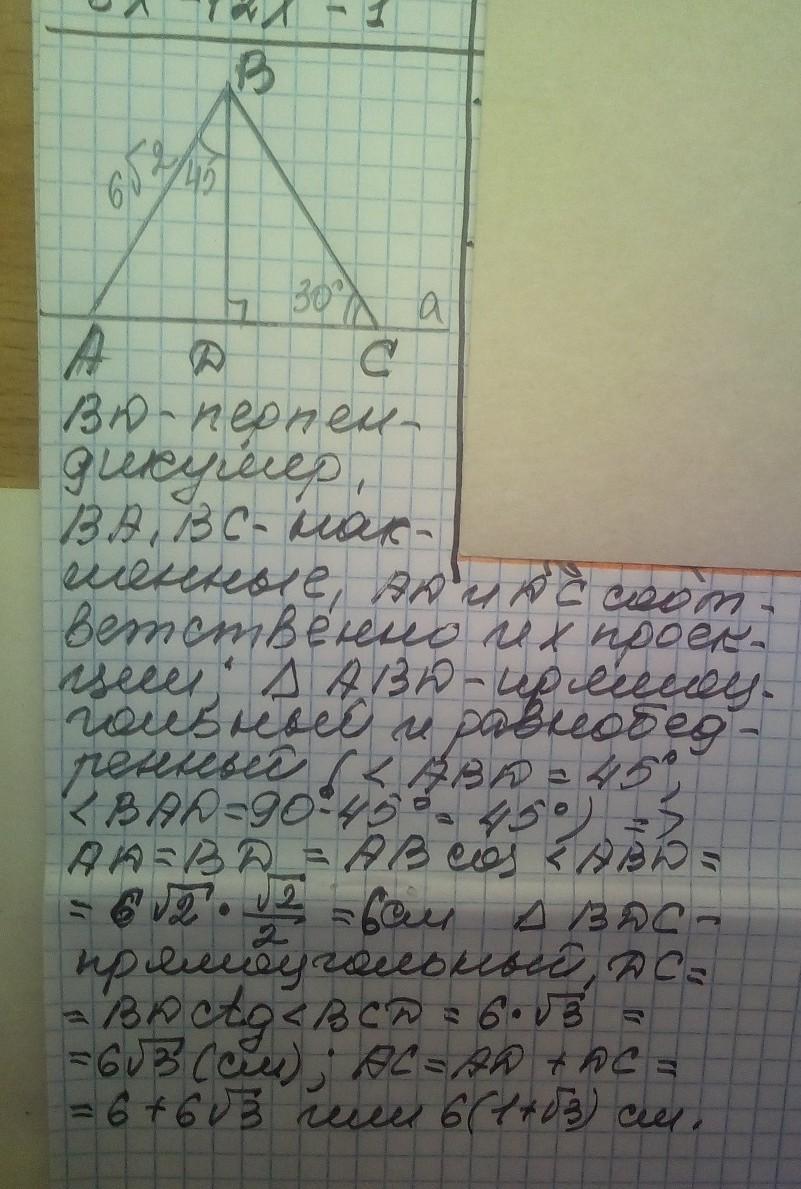 B
6√2
45
30°
a
A D C
BD - перпен-
дикуляр,
BA, BC - нак-
лонные, AD и DC соот-
ветственно их проек-
ции; Δ ABD - прямоу-
гольный и равнобед-
ренный (<ABD = 45°,
<BAD = 90°-45° = 45°) =>
AD = BD = AB cos <ABD =
= 6√2 · √2/2 = 6см Δ BDC -
прямоугольный, DC =
= BD ctg <BCD = 6·√3 =
= 6√3 (см); AC = AD + DC =
= 6 + 6√3 или 6(1+√3) см.